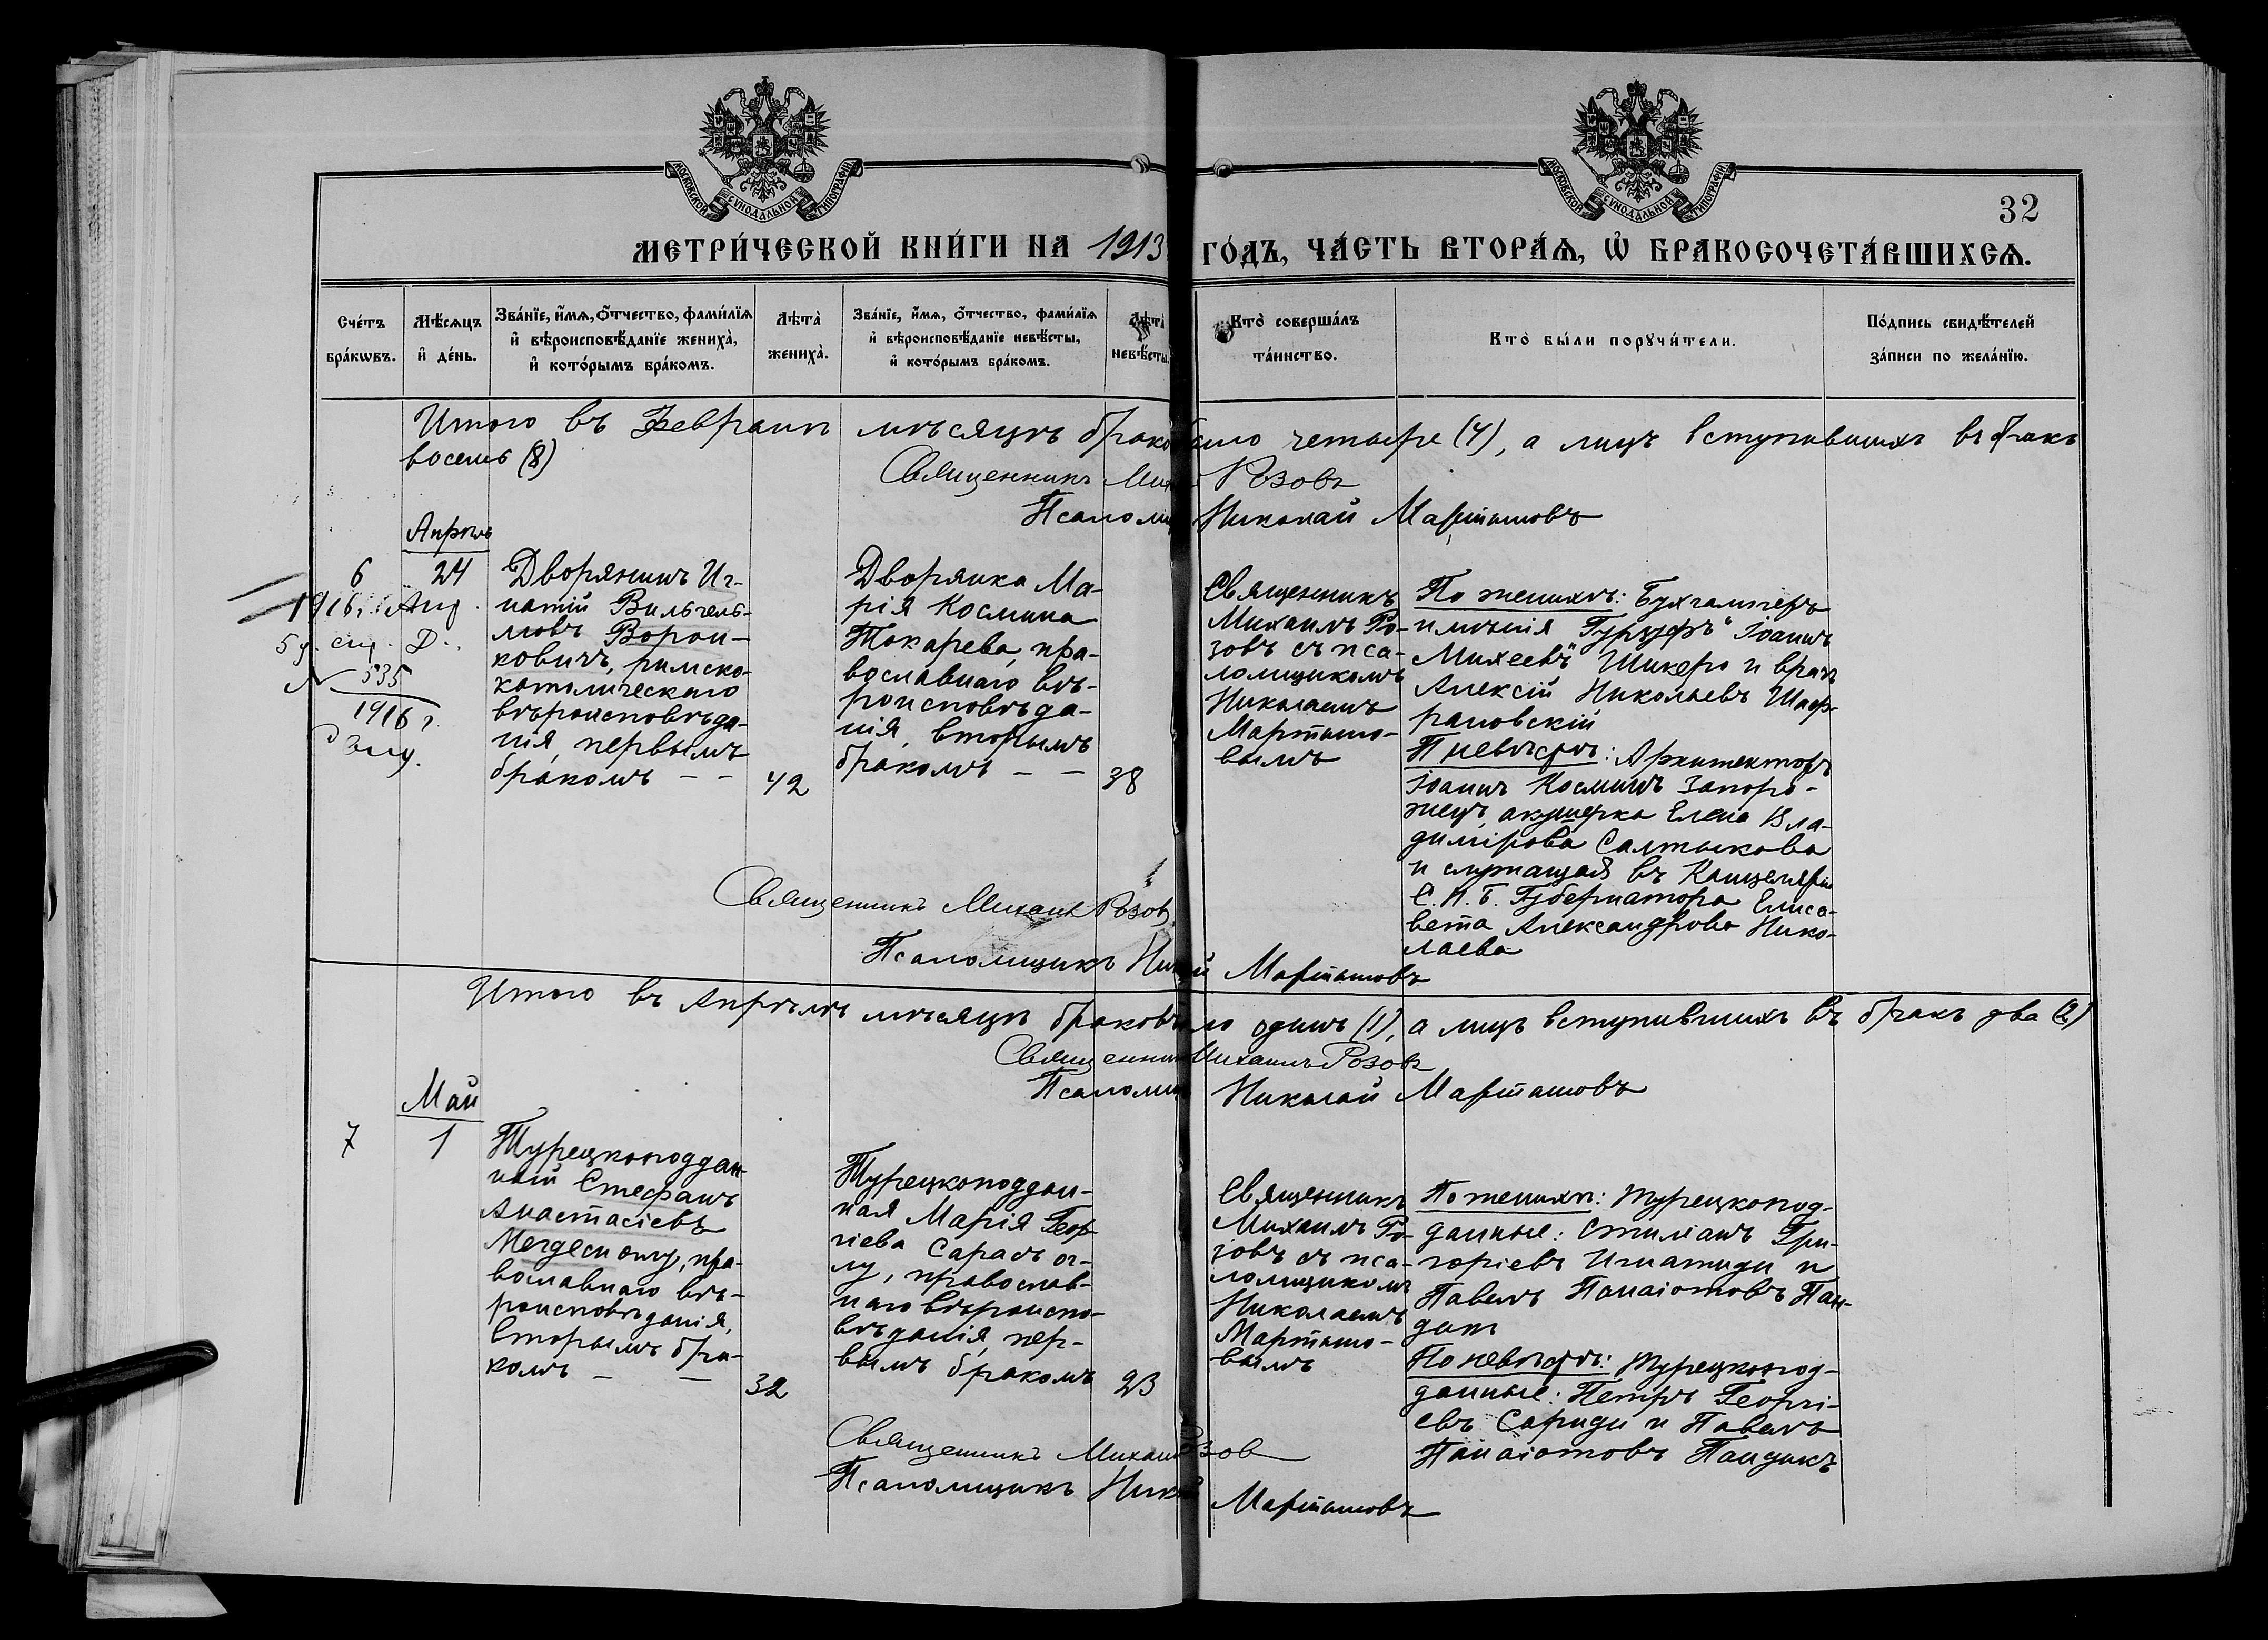 МОСКОВСКОЙ СУНОДАЛЬНОЙ ТИПОГРАФІИ
МОСКОВСКОЙ СУНОДАЛЬНОЙ ТИПОГРАФІИ
32
МЕТРИ́ЧЕСКОЙ КНИ́ГИ НА 1913 ГО́ДЪ, ЧА́СТЬ ВТОРА́Ѧ, Ѽ БРАКОСОЧЕТА́ВШИХСѦ.
Сче́тъ бра́кѡвъ.
Мѣ́сѧцъ и҆ де́нь.
Зва́нїе, и҆́мѧ, ѻ҆́тчество, фами́лїѧ
и҆ вѣроисповѣ́данїе жениха̀,
и҆ кото́рымъ бра́комъ.
Лѣта̀ жениха̀.
Зва́нїе, и҆́мѧ, ѻ҆́тчество, фами́лїѧ
и҆ вѣроисповѣ́данїе невѣ́сты,
и҆ кото́рымъ бра́комъ.
Лѣта̀ невѣ́сты.
Кто̀ соверша́лъ
та́инство.
Кто̀ бы́ли порꙋчи́тели.
По́дпись свидѣ́телей
за́писи по жела́нїю.
Итого въ Февралѣ мѣсяцѣ брако было четыре (4), а лицъ вступившихъ въ бракъ
восемь (8)
Священникъ Мих Розовъ
Псаломщ Николай Мартыновъ
Апрѣль
6
24
1916
335
1916 г.
Дворянинъ Иг-
натій Вильгель-
мовъ Ворон-
ковичъ, римско-
католическаго
вѣроисповѣда-
нія, первымъ
бракомъ – –
42
Дворянка Ма-
рія Космина
Токарева, пра-
вославнаго вѣ-
роисповѣда-
нія, вторымъ
бракомъ – –
38
Священникъ
Михаилъ Ро-
зовъ съ пса-
ломщикомъ
Николаемъ
Мартыно-
вымъ
По женихѣ: Бухгалтеръ
имѣнія „Гурзуфъ" Іоаннъ
Михеевъ Шикеро и врачъ
Алексій Николаевъ Шаф-
рановскій
П невѣстѣ: Архитекторъ
Іоаннъ Косминъ Запоро-
жецъ, акушерка Елена Вла-
димірова Салтыкова
и служащая въ Канцеляріи
С. П. Б. Губернатора Елиса-
вета Александрова Нико-
лаева
Священникъ Михаилъ Розовъ
Псаломщикъ Ник й Мартыновъ
Итого въ Апрѣлѣ мѣсяцѣ браковъ ло одинъ (1), а лицъ вступившихъ въ бракъ два (2)
Священник Михаилъ Розовъ
Псаломщ Николай Мартыновъ
Май
7
1
Турецкоподдан-
ный Стефанъ
Анастасіевъ
оглу, пра-
вославнаго вѣ-
роисповѣданія,
вторымъ бра-
комъ – –
32
Турецкоподдан-
ная Марія Геор-
гіева Сарасъ ог-
лу, православ-
наго вѣроиспо-
вѣданія, пер-
вымъ бракомъ
23
Священникъ
Михаилъ Ро-
зовъ съ пса-
ломщикомъ
Николаемъ
Мартыно-
вымъ
По женихѣ: Турецкопод-
данные: Стиліанъ Гри-
горіевъ Игнатиди и
Павелъ Панаіотовъ Пан-
дикъ
По невѣстѣ: Турецкопод-
данные: Петръ Георгі-
евъ Сариди и Павелъ
Панаіотовъ Пандикъ
Священникъ Михаил Розов
Псаломщикъ Ник Мартыновъ